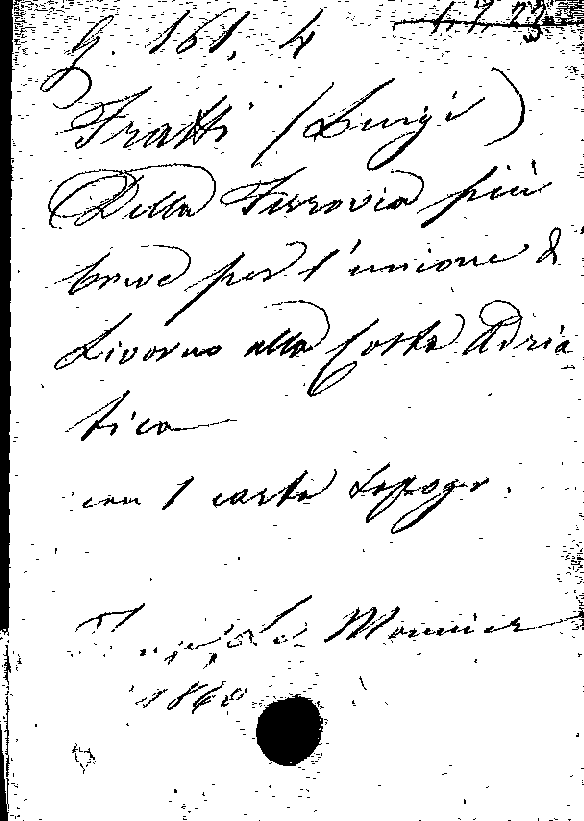 G. 161. 4
Fratti (Luigi)
Della Ferrovia più
breve per l'unione di
Livorno alla Costa Adria
tica
con 1 carta topogr.
Le Monnier
1860